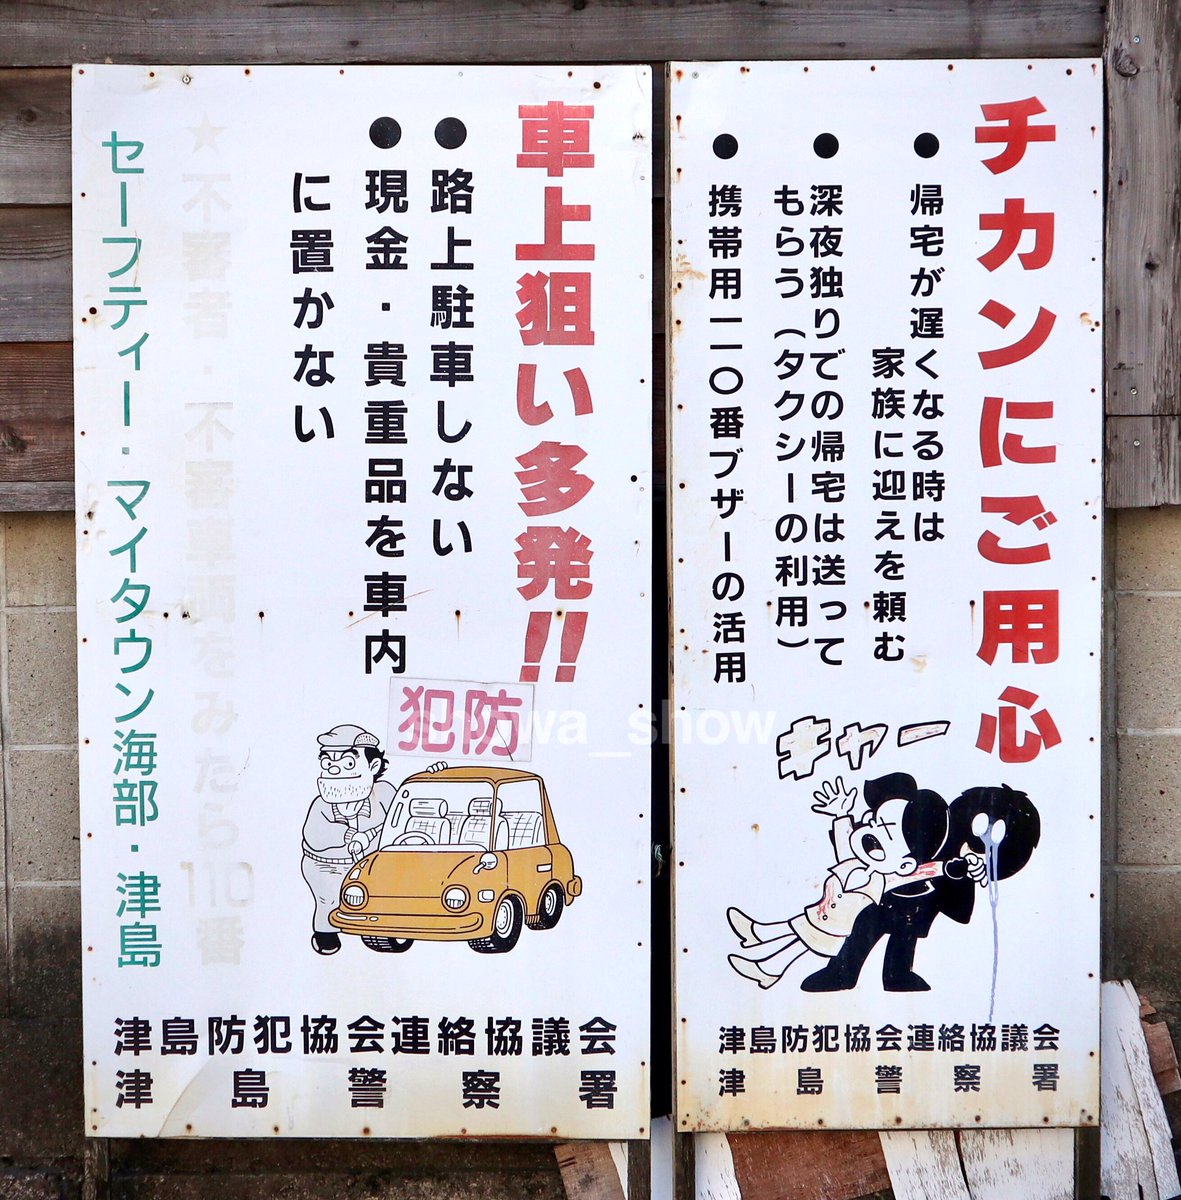 チカンにご用心
●帰宅が遅くなる時は
家族に迎えを頼む
●深夜独りでの帰宅は送って
もらう（タクシーの利用）
●携帯用一一〇番ブザーの活用
キャー
津島防犯協会連絡協議会
津島警察署
車上狙い多発!!
●路上駐車しない
●現金・貴重品を車内
に置かない
★不審者・不審車両をみたら110番
セーフティー・マイタウン海部・津島
犯防
津島防犯協会連絡協議会
津島警察署
showa_show